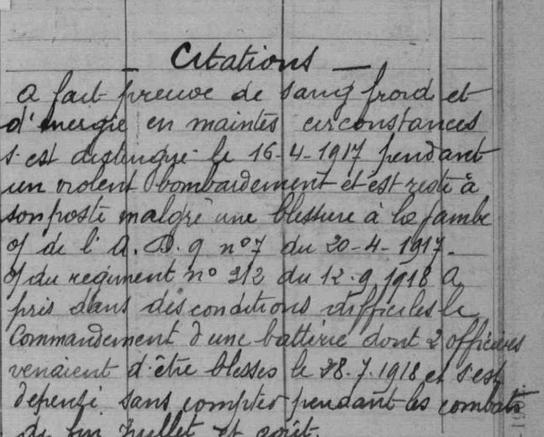 — Citations —
A fait preuve de sang froid et
d'energie en maintes circonstances
s'est distingué le 16-4-1917 pendant
un violent bombardement et est resté à
son poste malgré une blessure à la jambe
de l'A. D. 9 n° 7 du 20-4-1917.
du regiment n° 212 du 12.9.1918 A
pris dans des conditions difficiles le
Commandement d'une batterie dont 2 officiers
venaient d'être blessés le 28.7.1918 et s'est
depensé sans compter pendant les combats
de fin Juillet et août.